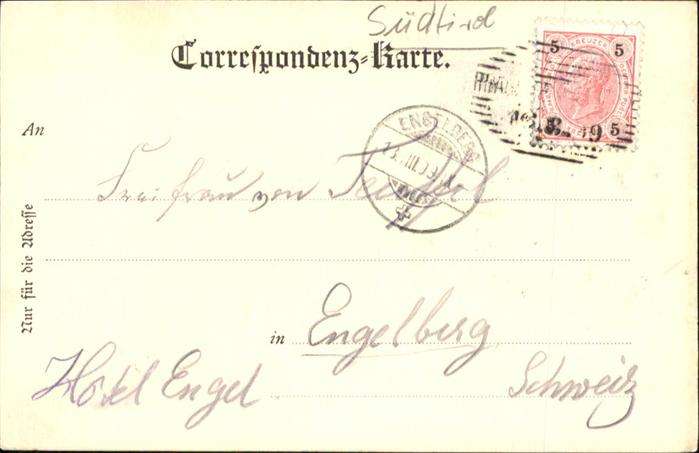 Südtirol
Correspondenz-Karte.
5 KREUZER 5
5
ENGELBERG
An
Freifrau von
Nur für die Adresse
in Engelberg
Hotel Engel Schweiz